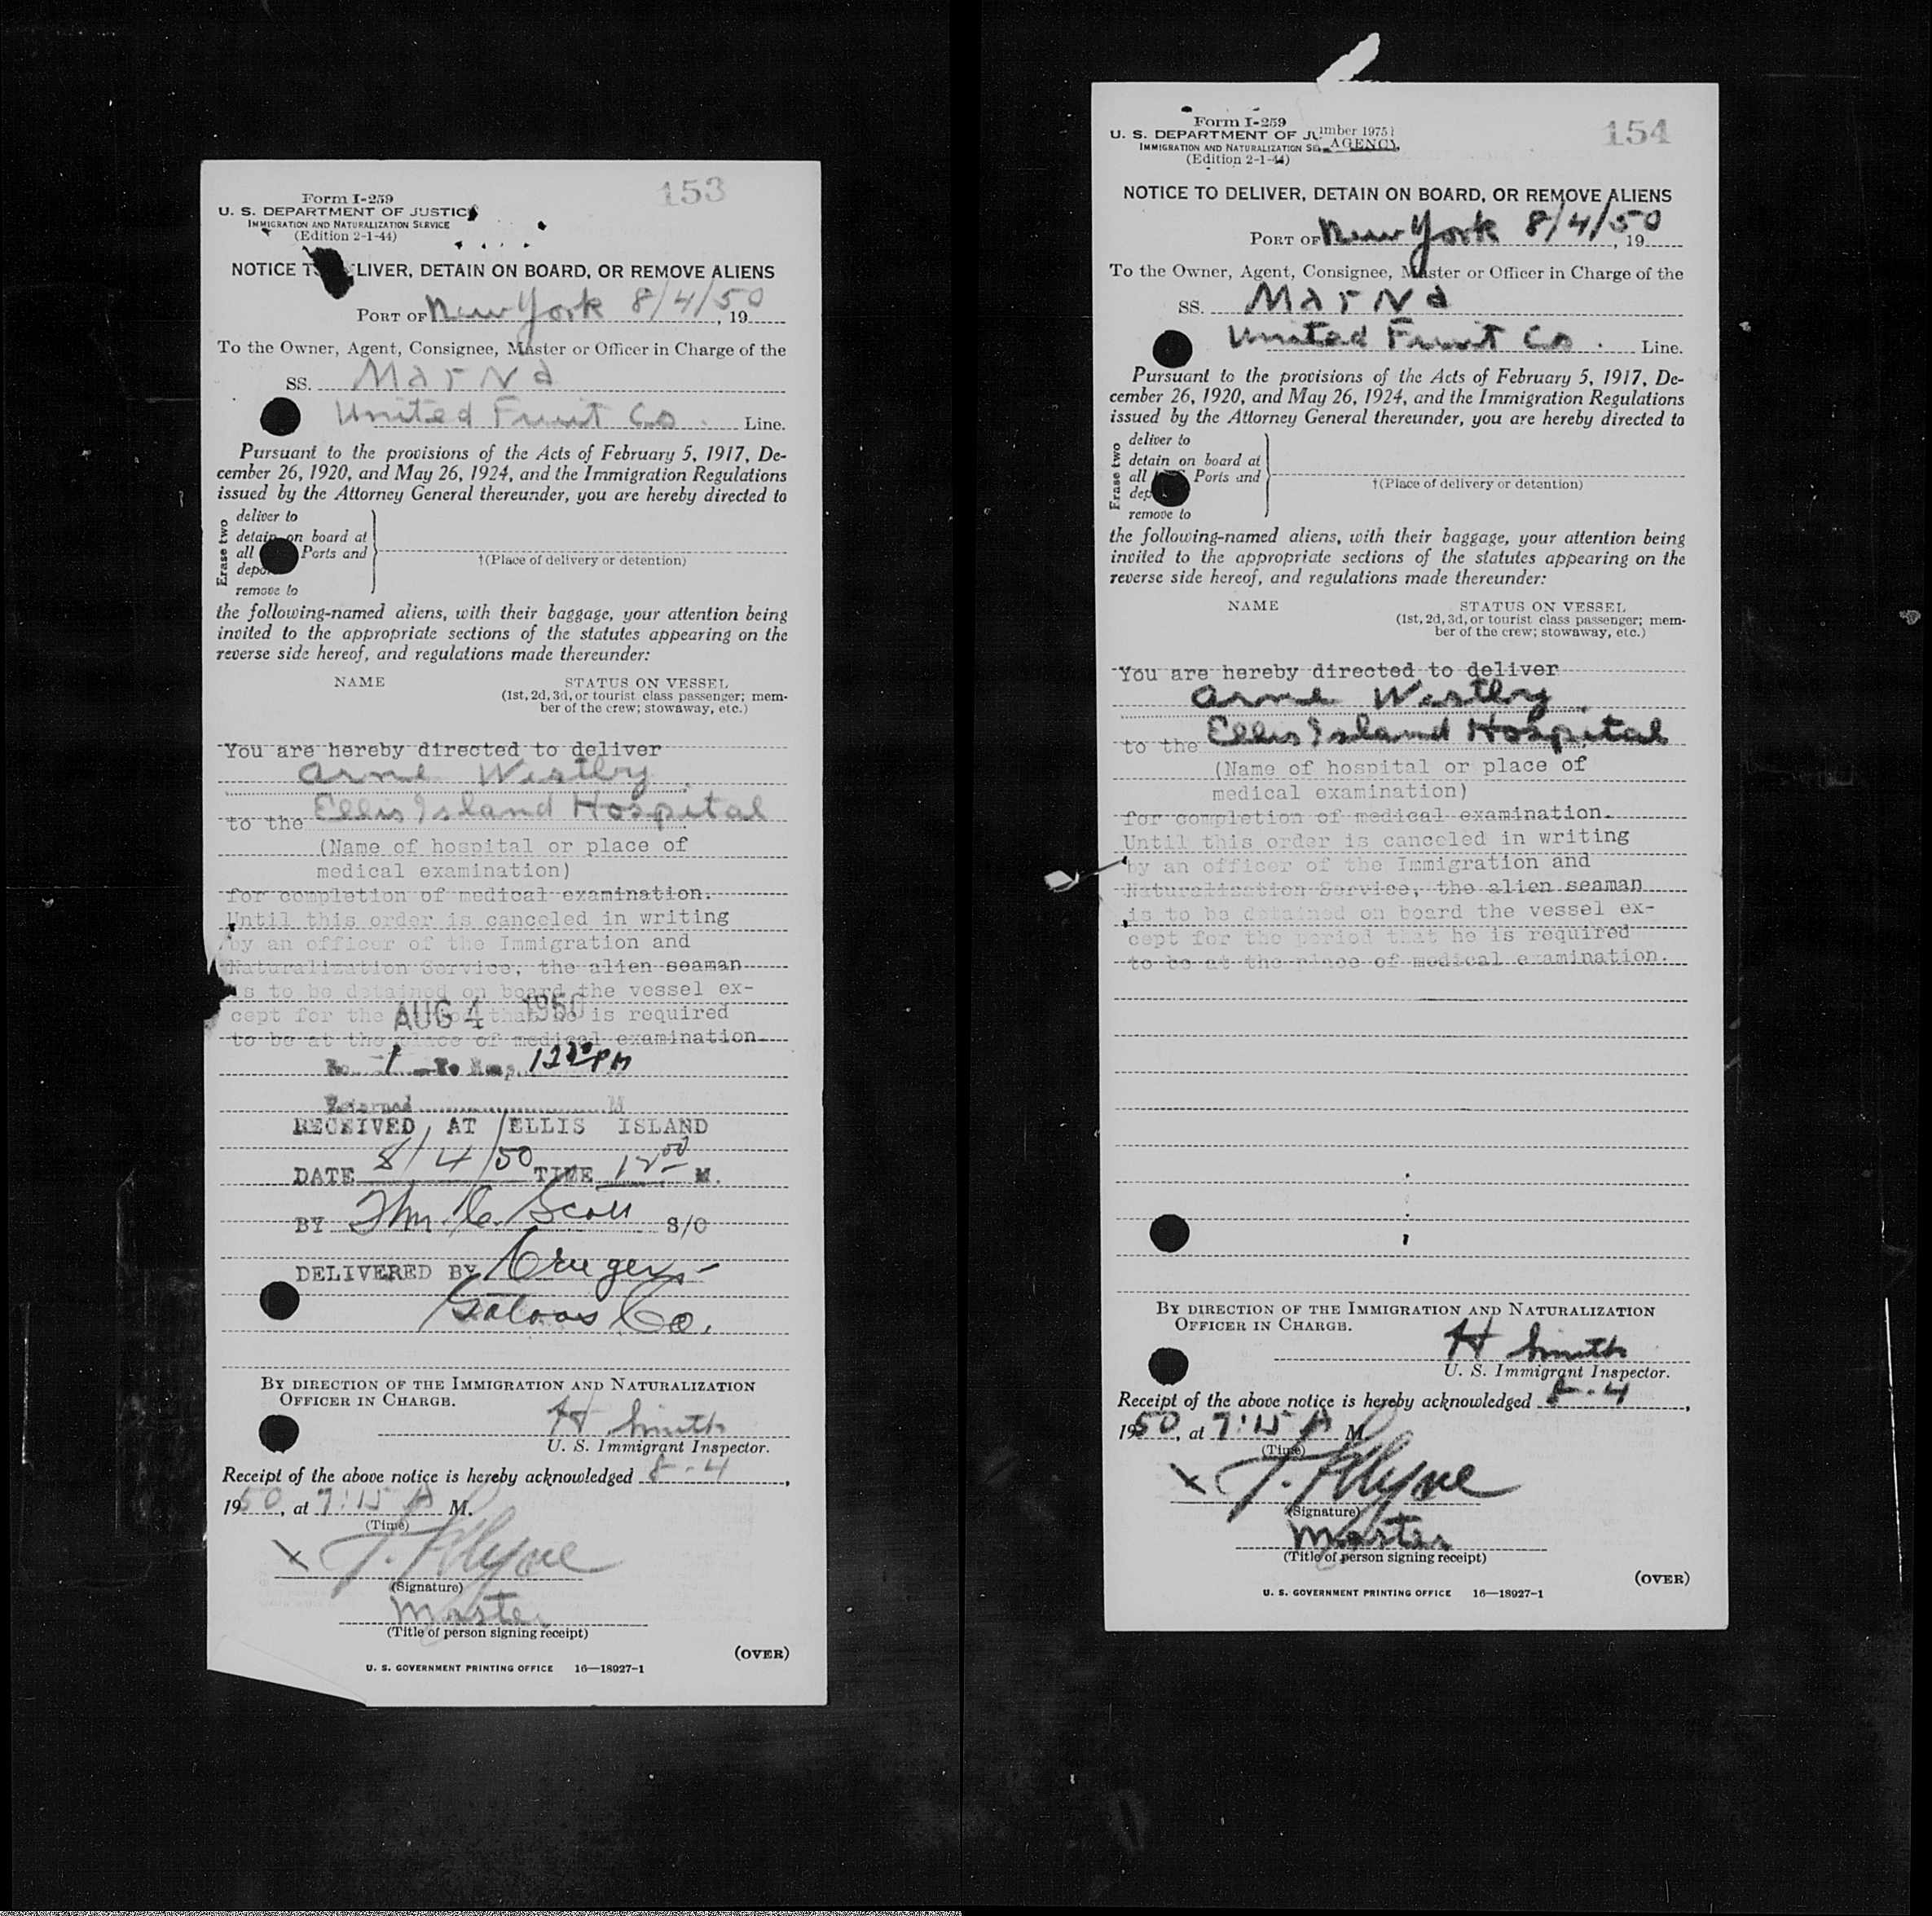 153
Form I-259
U. S. DEPARTMENT OF JUSTICE
IMMIGRATION AND NATURALIZATION SERVICE
(Edition 2-1-44)
NOTICE T LIVER, DETAIN ON BOARD, OR REMOVE ALIENS
PORT OF New York 8/4/50, 19
To the Owner, Agent, Consignee, Master or Officer in Charge of the
SS. Marna
United Fruit Co. Line.
Pursuant to the provisions of the Acts of February 5, 1917, De-
cember 26, 1920, and May 26, 1924, and the Immigration Regulations
issued by the Attorney General thereunder, you are hereby directed to
Erase two
deliver to
detain on board at
all Ports and
depo
remove to
†(Place of delivery or detention)
the following-named aliens, with their baggage, your attention being
invited to the appropriate sections of the statutes appearing on the
reverse side hereof, and regulations made thereunder:
NAME STATUS ON VESSEL
(1st, 2d, 3d, or tourist class passenger; mem-
ber of the crew; stowaway, etc.)
You are hereby directed to deliver
Arne Westby
to the Ellis Island Hospital
(Name of hospital or place of
medical examination)
for completion of medical examination.
Until this order is canceled in writing
by an officer of the Immigration and
Naturalization Service, the alien seaman
is to be detained on board the vessel ex-
cept for the that he is required
AUG 4 1950
to be at the place of medical examination.
To Hosp. 12 PM
Returned M
RECEIVED AT ELLIS ISLAND
DATE 8/4/50 TIME 12 M.
BY C. Scott S/O
DELIVERED BY
Co.
BY DIRECTION OF THE IMMIGRATION AND NATURALIZATION
OFFICER IN CHARGE.
H Smith
U. S. Immigrant Inspector.
Receipt of the above notice is hereby acknowledged 8-4,
1950, at 7:15 A M.
(Time)
X
(Signature)
Master
(Title of person signing receipt)
(OVER)
U. S. GOVERNMENT PRINTING OFFICE 16—18927-1
154
Form I-259
U. S. DEPARTMENT OF JU
mber 1975)
IMMIGRATION AND NATURALIZATION SE
AGENCY
(Edition 2-1-44)
NOTICE TO DELIVER, DETAIN ON BOARD, OR REMOVE ALIENS
PORT OF New York 8/4/50, 19
To the Owner, Agent, Consignee, Master or Officer in Charge of the
SS. Marna
United Fruit Co. Line.
Pursuant to the provisions of the Acts of February 5, 1917, De-
cember 26, 1920, and May 26, 1924, and the Immigration Regulations
issued by the Attorney General thereunder, you are hereby directed to
Erase two
deliver to
detain on board at
all Ports and
dep
remove to
†(Place of delivery or detention)
the following-named aliens, with their baggage, your attention being
invited to the appropriate sections of the statutes appearing on the
reverse side hereof, and regulations made thereunder:
NAME STATUS ON VESSEL
(1st, 2d, 3d, or tourist class passenger; mem-
ber of the crew; stowaway, etc.)
You are hereby directed to deliver
Arne Westby
to the Ellis Island Hospital
(Name of hospital or place of
medical examination)
for completion of medical examination.
Until this order is canceled in writing
by an officer of the Immigration and
Naturalization Service, the alien seaman
is to be detained on board the vessel ex-
cept for the period that he is required
to be at the place of medical examination.
BY DIRECTION OF THE IMMIGRATION AND NATURALIZATION
OFFICER IN CHARGE.
H Smith
U. S. Immigrant Inspector.
Receipt of the above notice is hereby acknowledged 8-4,
1950, at 7:15 A M.
(Time)
X
(Signature)
Master
(Title of person signing receipt)
(OVER)
U. S. GOVERNMENT PRINTING OFFICE 16—18927-1